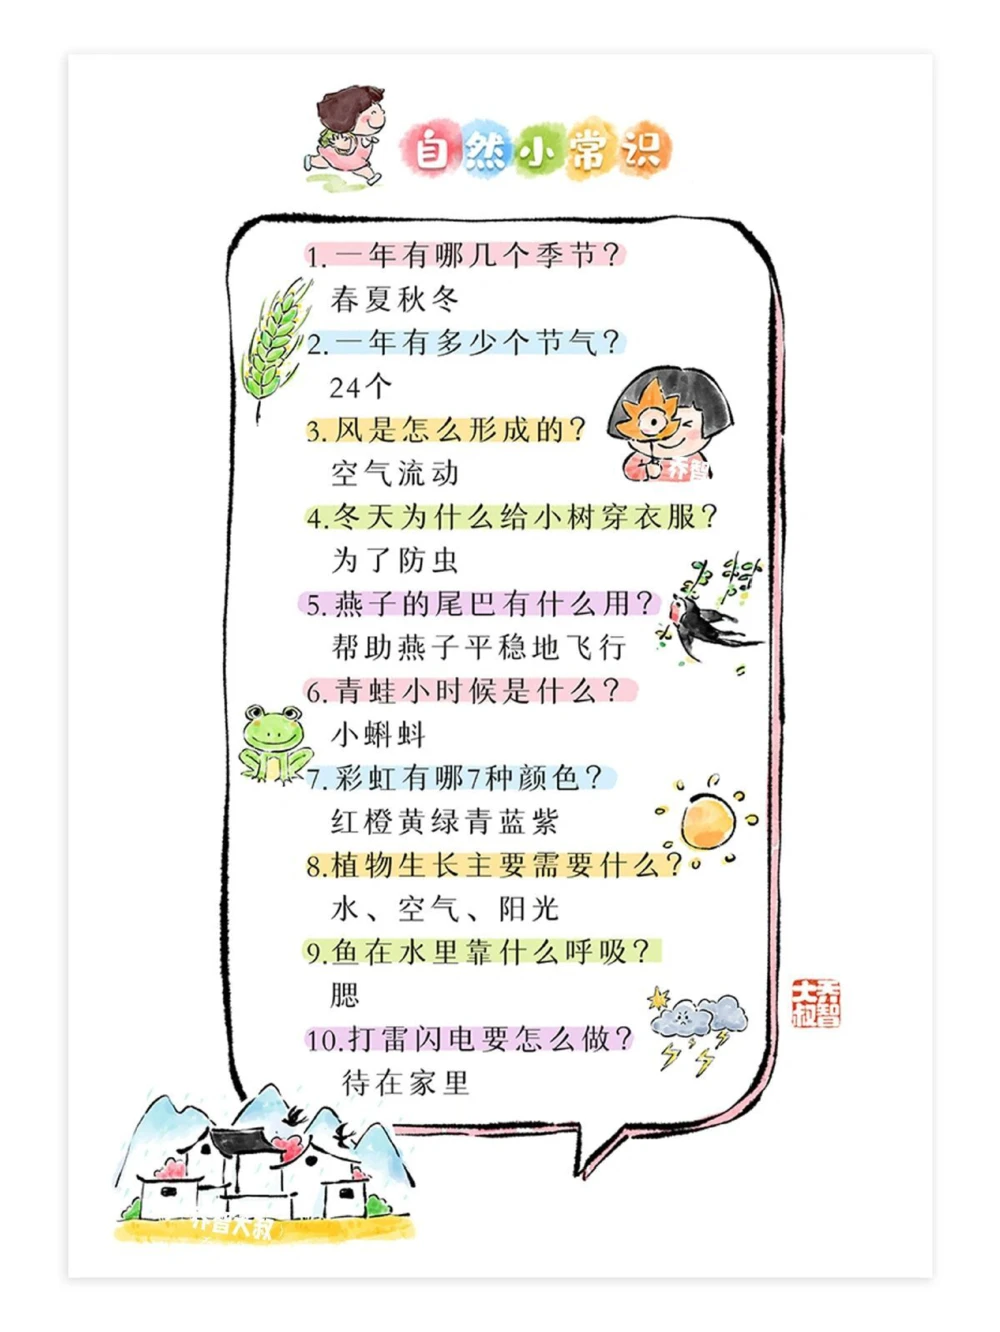 自然小常识
1.一年有哪几个季节？
春夏秋冬
2.一年有多少个节气？
24个
3.风是怎么形成的？
空气流动
乔智
4.冬天为什么给小树穿衣服？
为了防虫
5.燕子的尾巴有什么用？
帮助燕子平稳地飞行
6.青蛙小时候是什么？
小蝌蚪
7.彩虹有哪7种颜色？
红橙黄绿青蓝紫
8.植物生长主要需要什么？
水、空气、阳光
9.鱼在水里靠什么呼吸？
腮
乔智大叔
10.打雷闪电要怎么做？
待在家里
乔智大叔